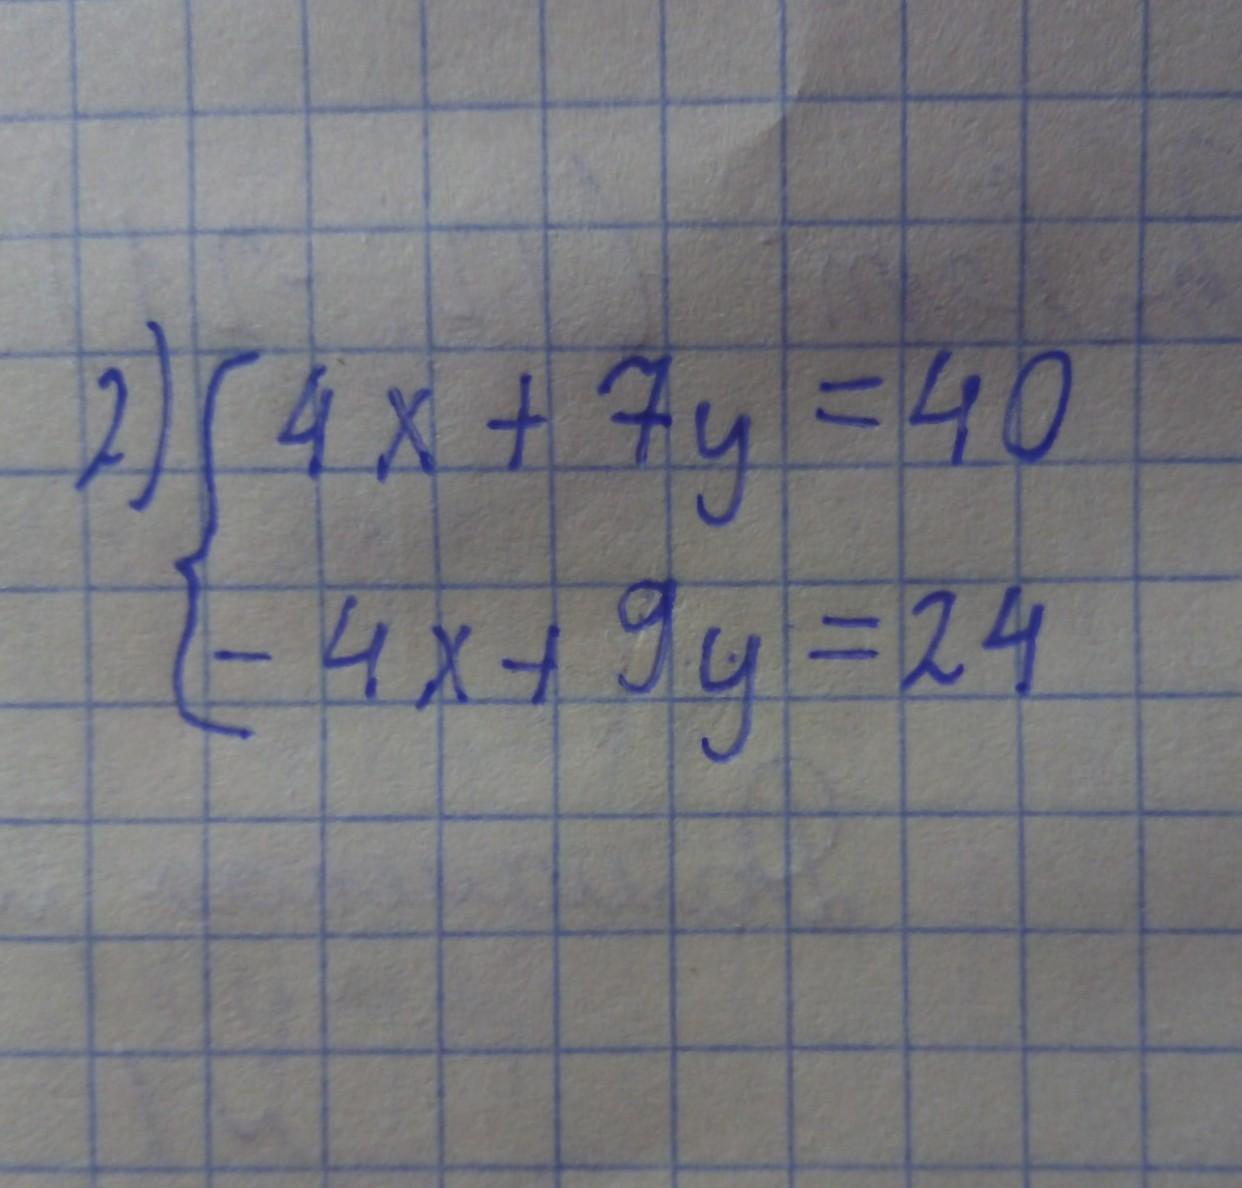 2) { 4x + 7y = 40
- 4x + 9y = 24